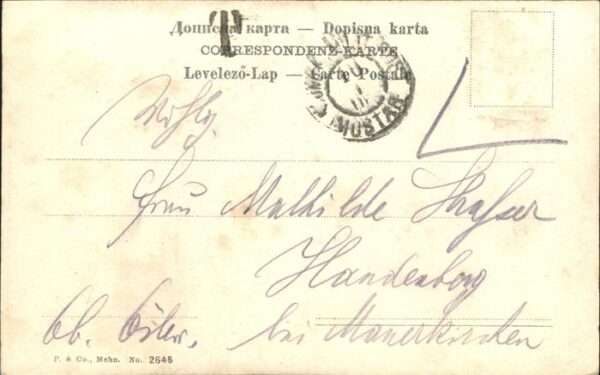 Дописна карта — Dopisna karta
CORRESPONDENZ-KARTE
Levelező-Lap — Carte Postale
T
MOSTAR
Frau Mathilde
Handenberg
Ob. Österr. bei Mauerkirchen
P. & Co., Mchn. No. 2645